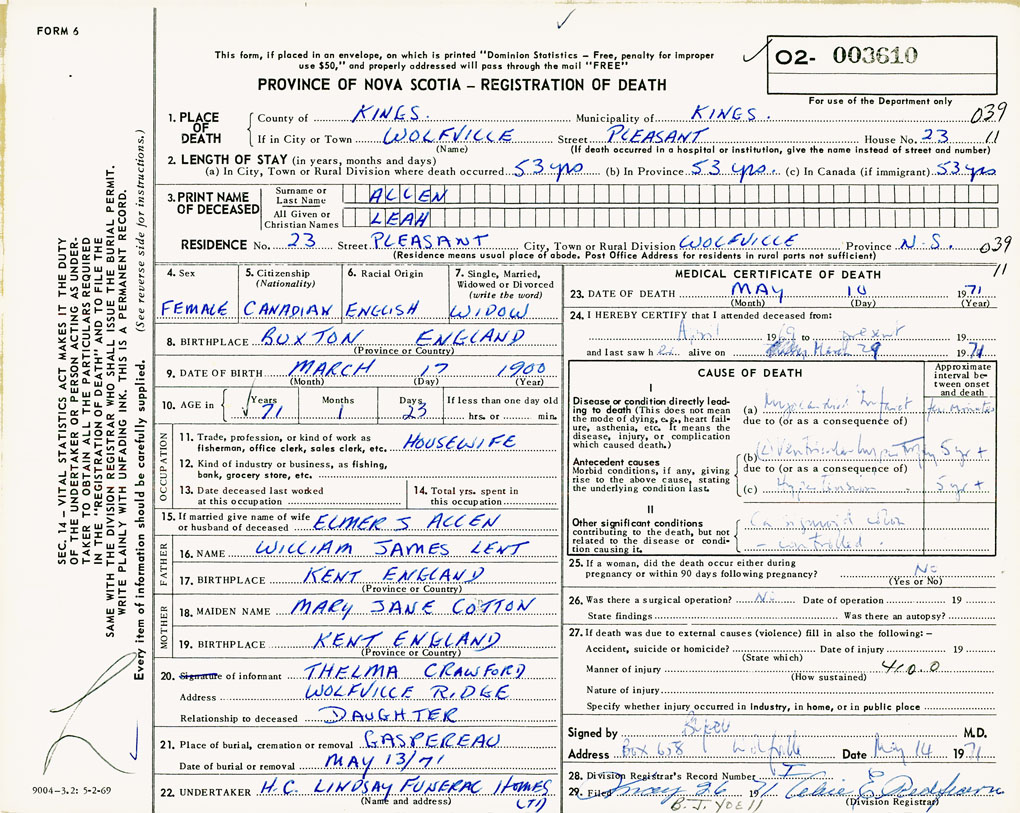 FORM 6
This form, if placed in an envelope, on which is printed "Dominion Statistics – Free, penalty for improper
use $50," and properly addressed will pass through the mail "FREE"
PROVINCE OF NOVA SCOTIA – REGISTRATION OF DEATH
O2- 003610
For use of the Department only
1. PLACE OF DEATH
County of KINGS. Municipality of KINGS. 039
If in City or Town WOLFVILLE Street PLEASANT House No. 23 11
(Name) (If death occurred in a hospital or institution, give the name instead of street and number)
2. LENGTH OF STAY (in years, months and days)
(a) In City, Town or Rural Division where death occurred 53 yrs (b) In Province 53 yrs. (c) In Canada (if immigrant) 53 yrs
3. PRINT NAME OF DECEASED
Surname or Last Name ALLEN
All Given or Christian Names LEAH
RESIDENCE No. 23 Street PLEASANT City, Town or Rural Division WOLFVILLE Province N.S. 039
(Residence means usual place of abode. Post Office Address for residents in rural parts not sufficient) 11
4. Sex
FEMALE
5. Citizenship
(Nationality)
CANADIAN
6. Racial Origin
ENGLISH
7. Single, Married,
Widowed or Divorced
(write the word)
WIDOW
8. BIRTHPLACE BUXTON ENGLAND
(Province or Country)
9. DATE OF BIRTH MARCH 17 1900
(Month) (Day) (Year)
10. AGE in Years 71 Months 1 Days 23 If less than one day old
hrs. or min.
OCCUPATION
11. Trade, profession, or kind of work as
fisherman, office clerk, sales clerk, etc. HOUSEWIFE
12. Kind of industry or business, as fishing,
bank, grocery store, etc.
13. Date deceased last worked
at this occupation
14. Total yrs. spent in
this occupation
15. If married give name of wife
or husband of deceased ELMER S ALLEN
FATHER
16. NAME WILLIAM JAMES LENT
17. BIRTHPLACE KENT ENGLAND
(Province or Country)
MOTHER
18. MAIDEN NAME MARY JANE COTTON
19. BIRTHPLACE KENT ENGLAND
(Province or Country)
20. Signature of informant THELMA CRAWFORD
Address WOLFVILLE RIDGE
Relationship to deceased DAUGHTER
21. Place of burial, cremation or removal GASPEREAU
Date of burial or removal MAY 13/71
22. UNDERTAKER H.C. LINDSAY FUNERAL HOMES
(Name and address) (TI)
MEDICAL CERTIFICATE OF DEATH
23. DATE OF DEATH MAY 10 1971
(Month) (Day) (Year)
24. I HEREBY CERTIFY that I attended deceased from:
April 1969 to
and last saw her alive on March 29 1971
CAUSE OF DEATH
Approximate interval between onset and death
I
Disease or condition directly leading to death (This does not
mean the mode of dying, e.g., heart failure, asthenia, etc. It means the
disease, injury, or complication
which caused death.)
(a) Myocardial Infarct few minutes
due to (or as a consequence of)
Antecedent causes
Morbid conditions, if any, giving
rise to the above cause, stating
the underlying condition last.
(b) (L) Ventricular hypertrophy 5 yr +
due to (or as a consequence of)
(c) Hypertension 5 yr +
II
Other significant conditions
contributing to the death, but not
related to the disease or condition causing it.
Ca sigmoid colon
- controlled.
25. If a woman, did the death occur either during
pregnancy or within 90 days following pregnancy? No
(Yes or No)
26. Was there a surgical operation? No Date of operation 19
State findings Was there an autopsy?
27. If death was due to external causes (violence) fill in also the following: –
Accident, suicide or homicide? Date of injury 19
(State which)
Manner of injury 410.0
(How sustained)
Nature of injury
Specify whether injury occurred in industry, in home, or in public place
Signed by M.D.
Address Box 658 Wolfville Date May 14 1971
28. Division Registrar's Record Number
29. Filed May 26 1971
(Division Registrar)
B. J. YOELL
SEC. 14 – VITAL STATISTICS ACT MAKES IT THE DUTY
OF THE UNDERTAKER OR PERSON ACTING AS UNDER-
TAKER TO OBTAIN ALL THE PARTICULARS REQUIRED
IN THE "REGISTRATION OF DEATH" AND TO FILE THE
SAME WITH THE DIVISION REGISTRAR WHO SHALL ISSUE THE BURIAL PERMIT.
WRITE PLAINLY WITH UNFADING INK. THIS IS A PERMANENT RECORD.
Every item of information should be carefully supplied. (See reverse side for instructions.)
9004-3.2: 5-2-69